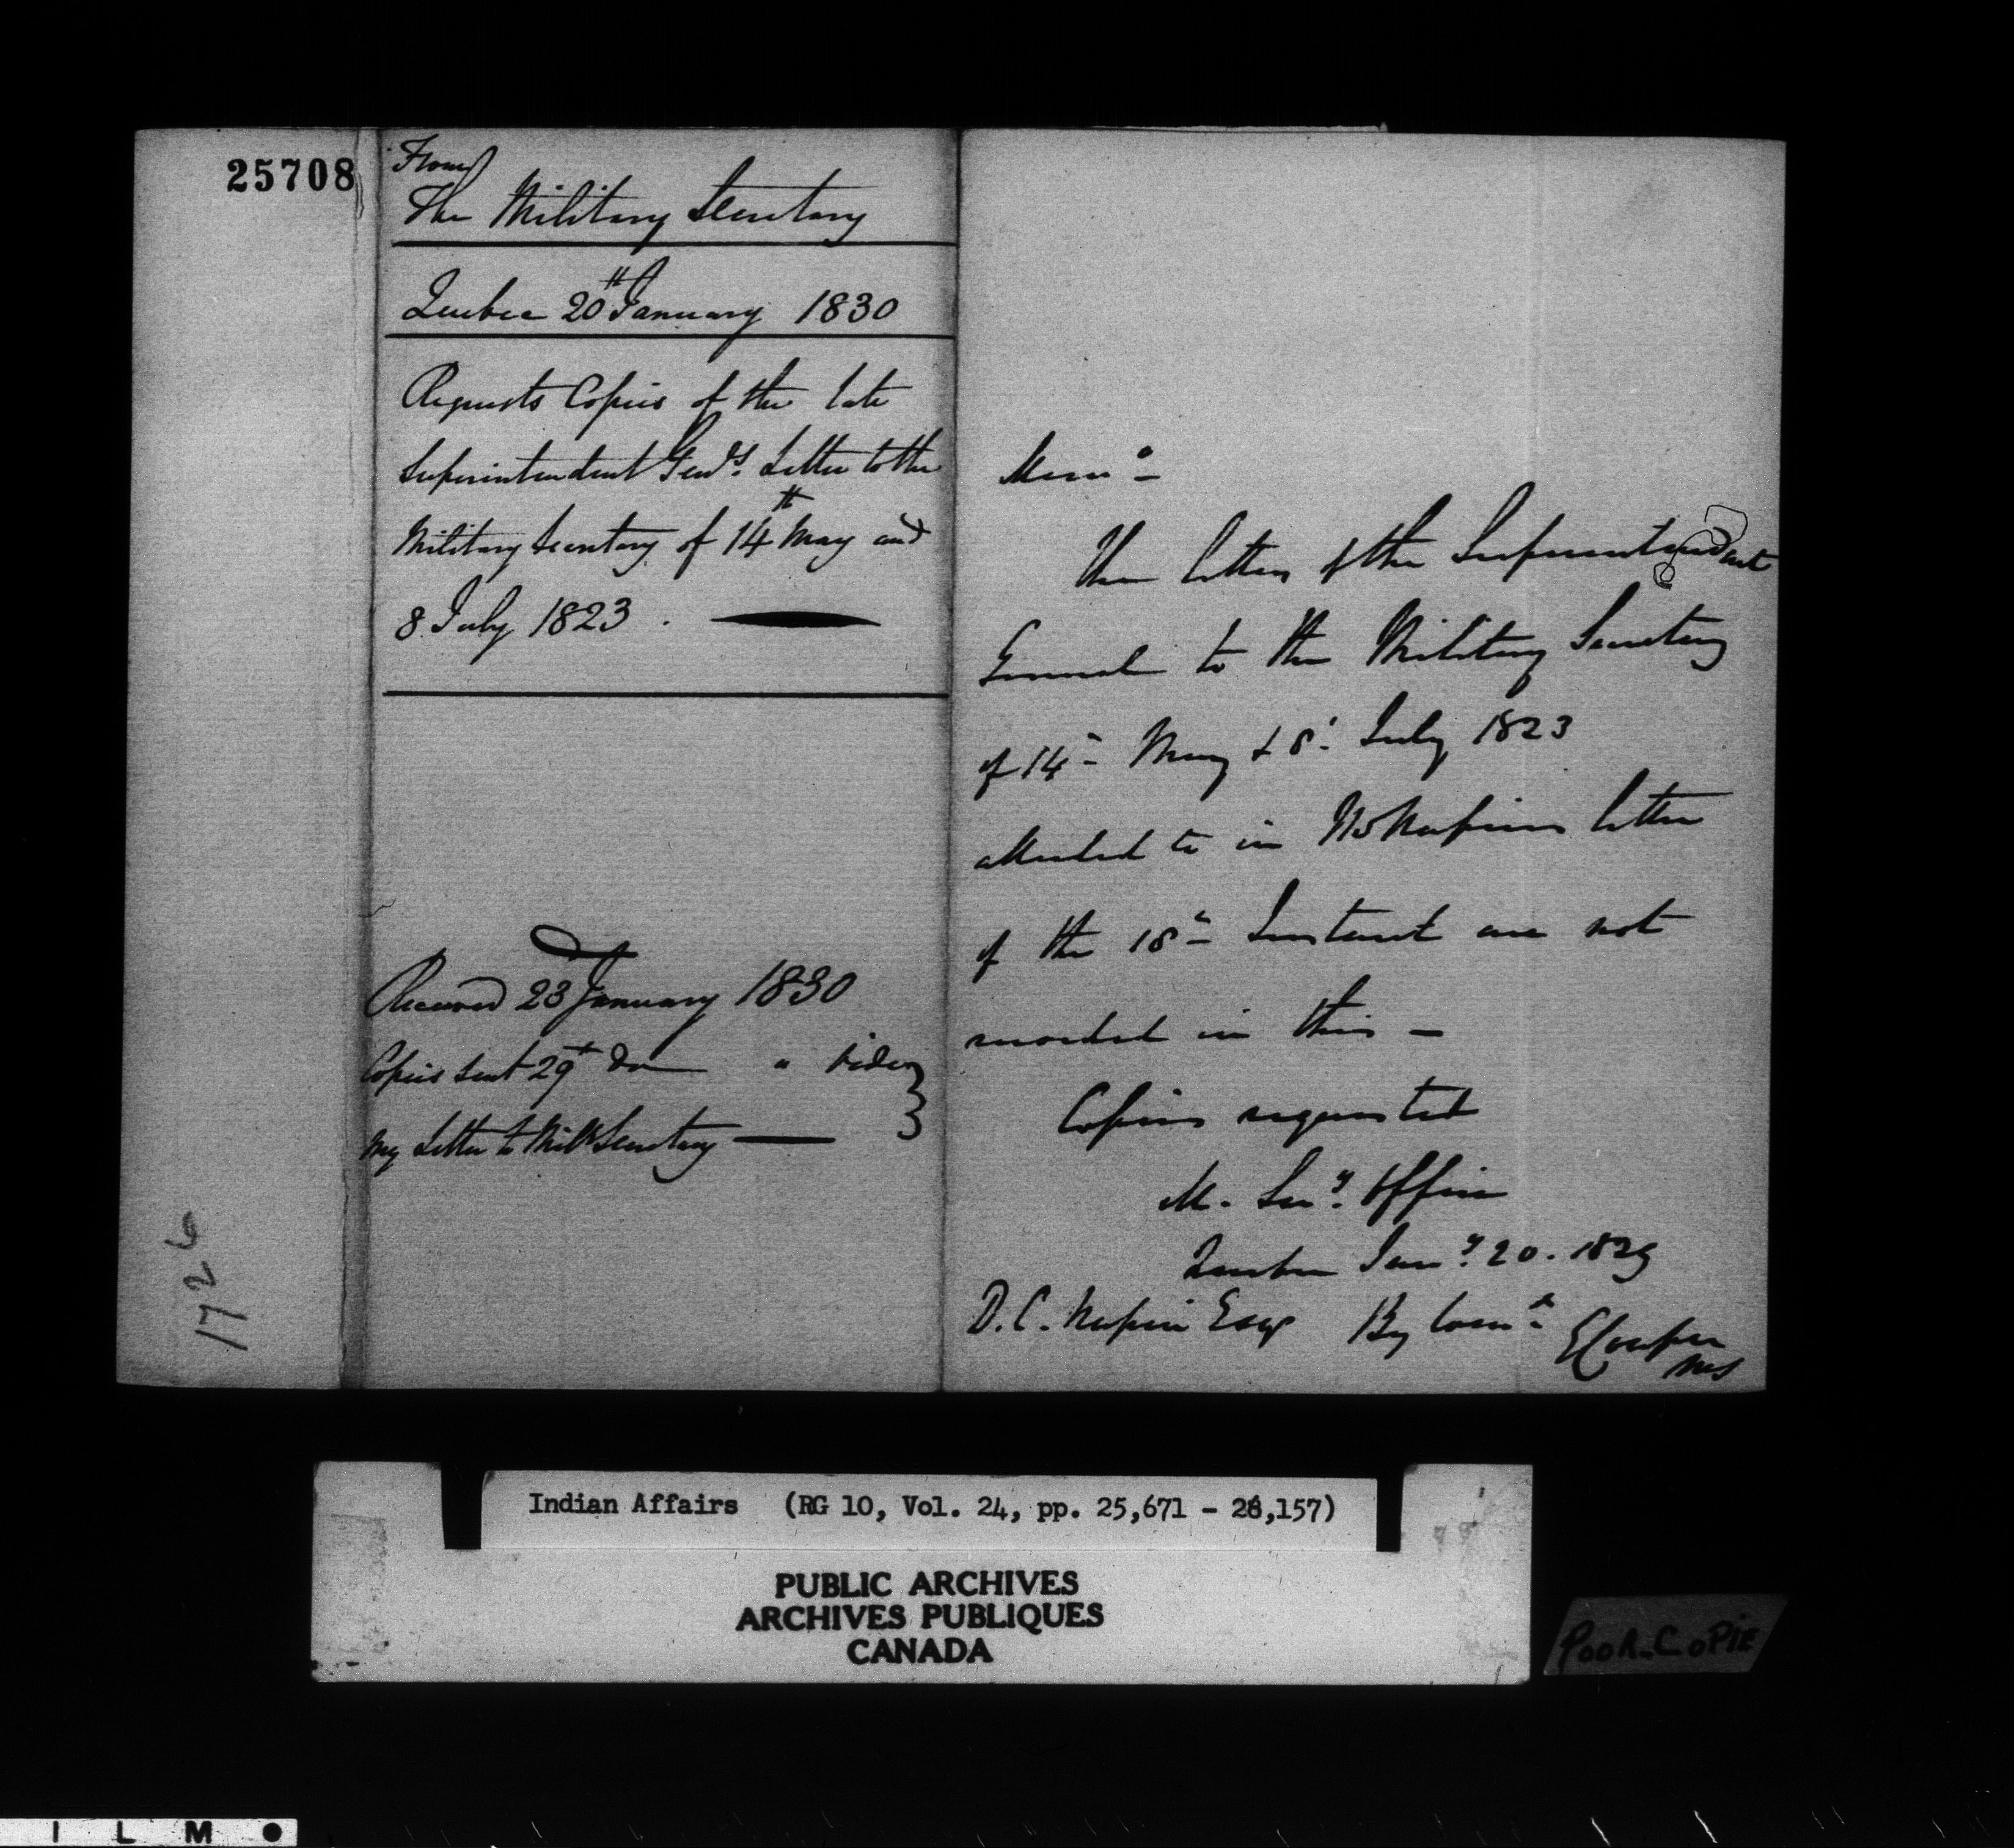 25708
From
The Military Secretary
Quebec 20th January 1830
Requests Copies of the late
Superintendent Genl's. Letter to the
Military Secretary of 14th May and
8 July 1823 .
Received 23 January 1830
Copies sent 29th Do " vide
my Letter to Mily Secretary
1726
Memo -
The letters of the Superintendent
General to the Military Secretary
of 14th May & 8th July 1823
alluded to in Mr Napiers letter
of the 18th Instant are not
recorded in this -
Copies requested
M. Secy. Office
Quebec Jany. 20. 1829
D.C. Napier Esqr By Comd
E Cowper
MS
Indian Affairs (RG 10, Vol. 24, pp. 25,671 - 28,157)
PUBLIC ARCHIVES
ARCHIVES PUBLIQUES
CANADA
POOR COPIE
I L M